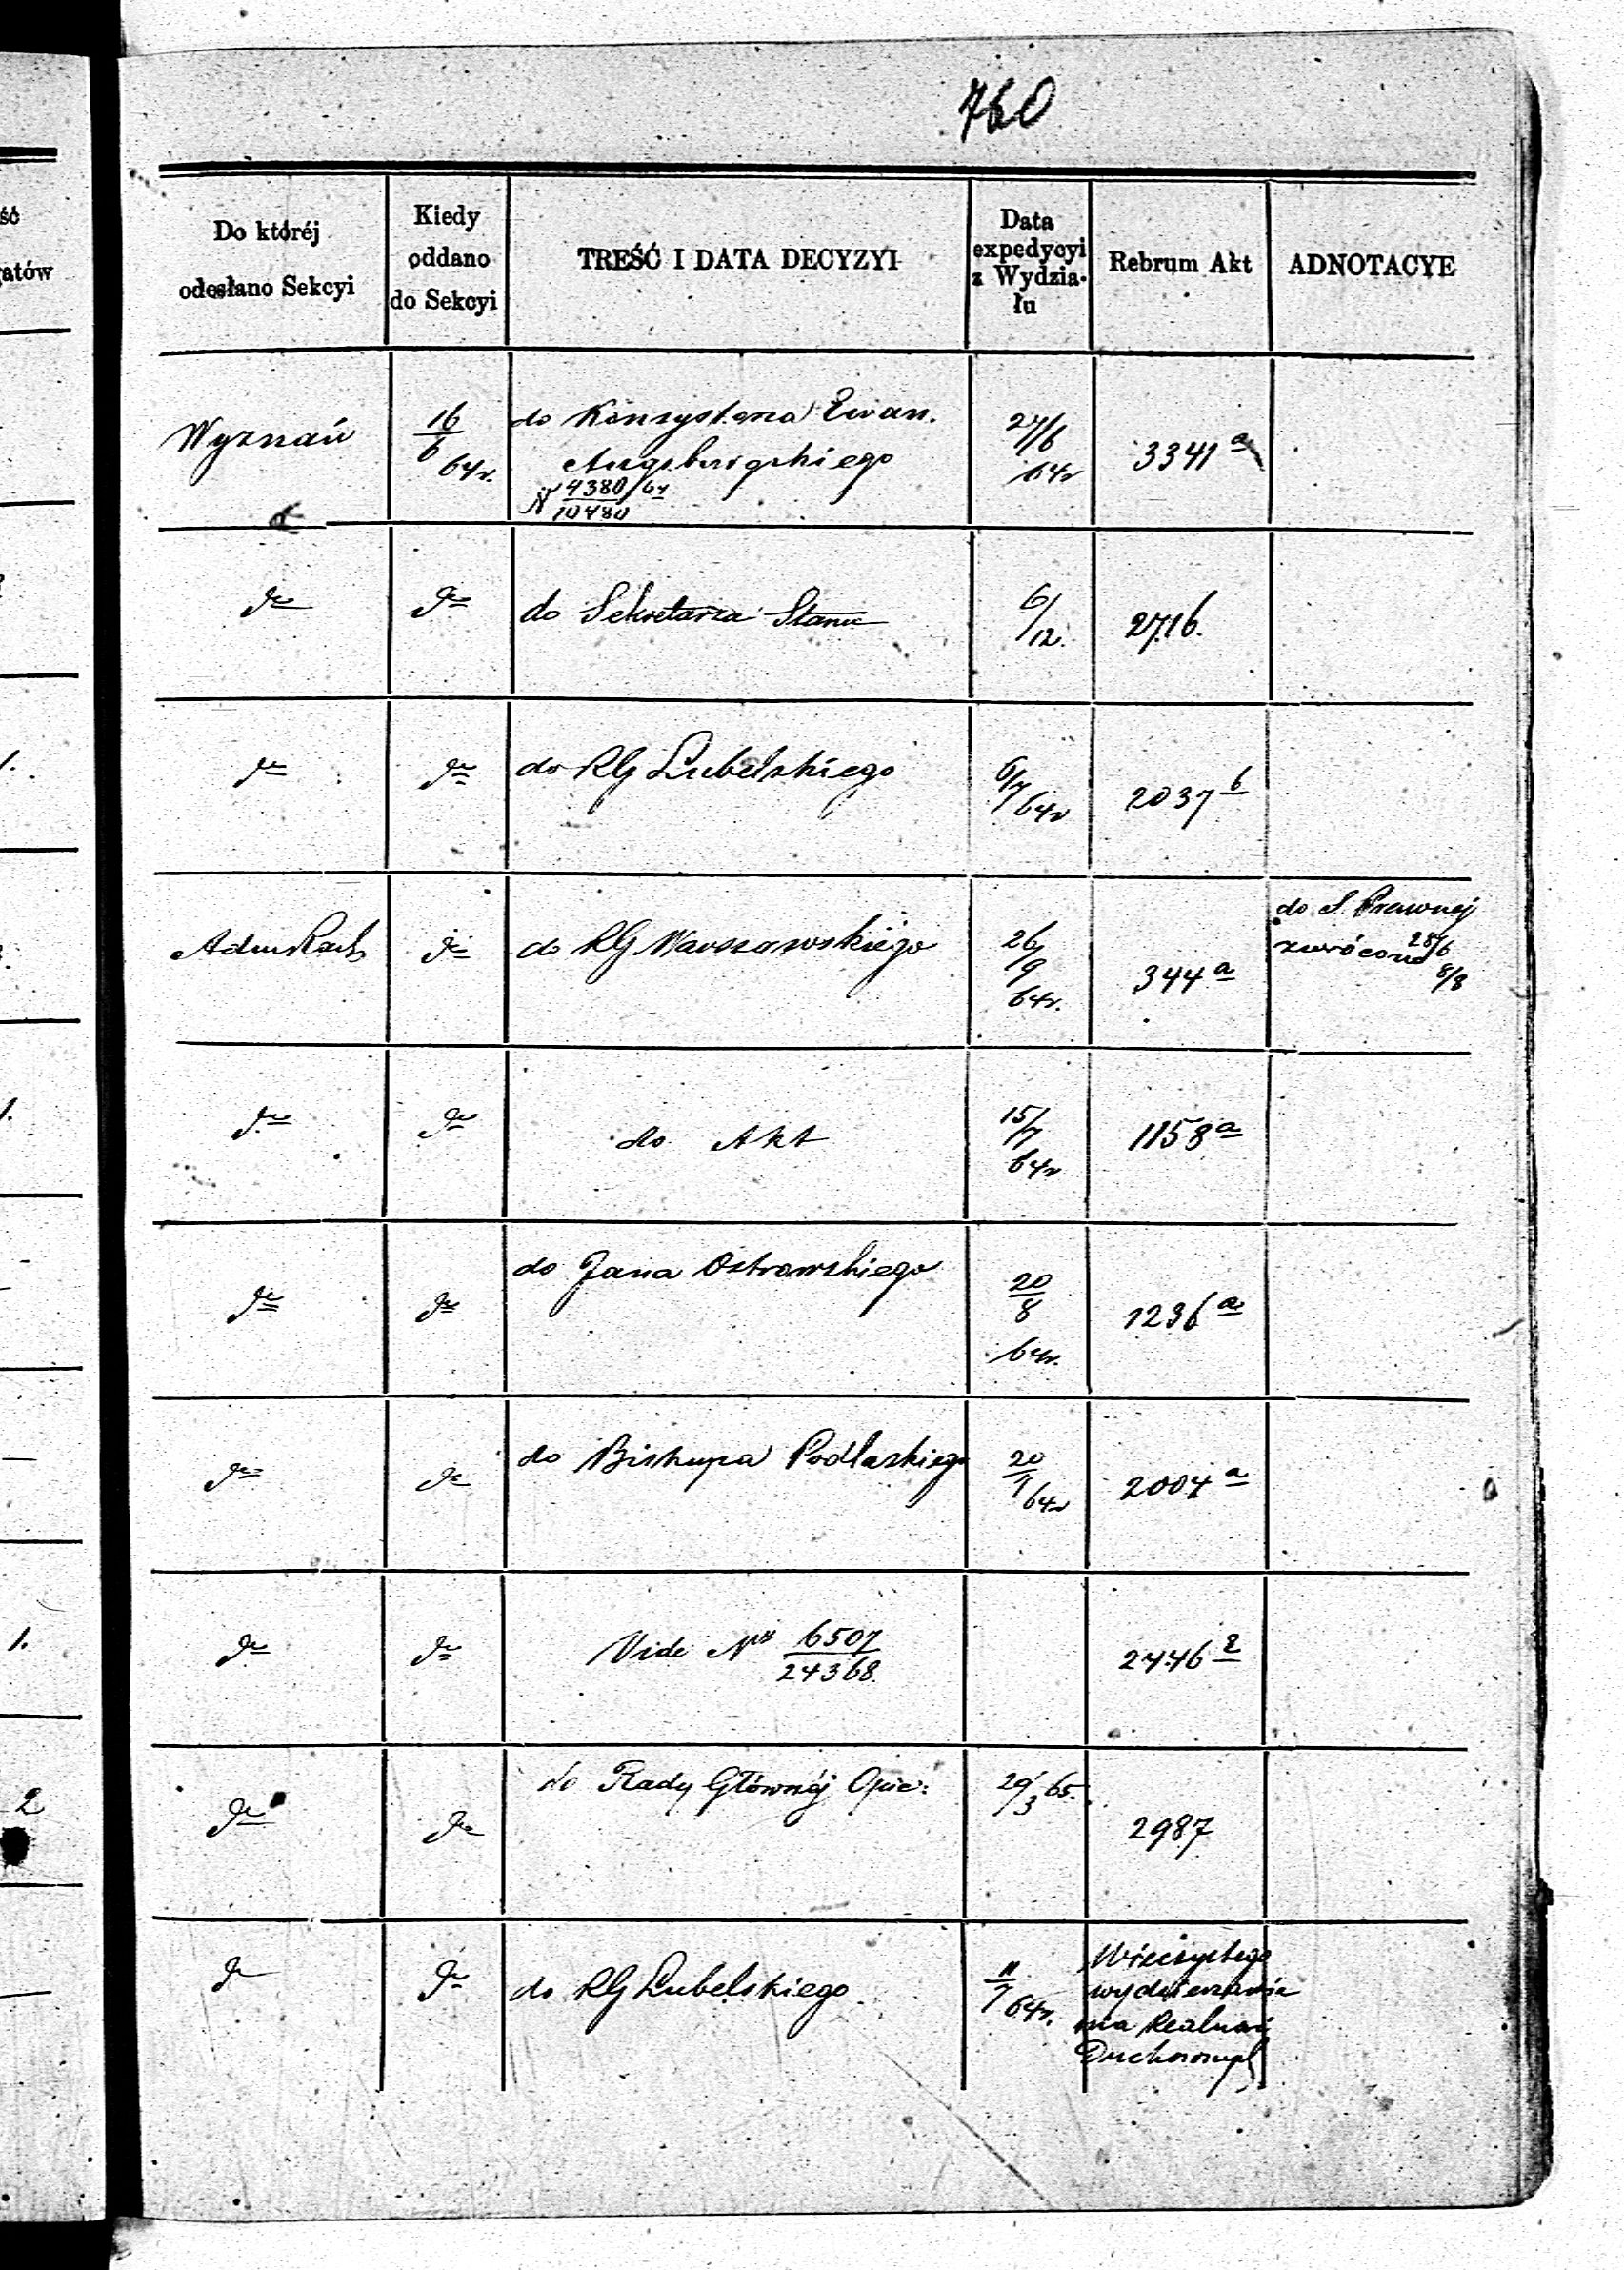 760
ść
gatów
Do któréj
odesłano Sekcyi
Kiedy
oddano
do Sekcyi
TREŚĆ I DATA DECYZYI
Data
expedycyi
z Wydzia-
łu
Rebrum Akt
ADNOTACYE
Wyznań
16/6 64r.
do Konsystorza Ewan.
Augsburgskiego
№ 4380/10480 /64
27/6
64r
3341 a
do
do
do Sekretarza Stanu
6/12.
2716.
1.
do
do
do RG Lubelskiego
6/7 64r
2037 b
do
do RG Warszawskiego
26/9
64r.
344 a
do S. Prawnej
zwrócono 28/6
8/8
1.
do
do
do Akt
15/7
64r
1158 a
do
do
do Jana Ostrowskiego
20/8
64r.
1236 a
do
do
do Biskupa Podlaskiego
20/7 64r
2004 a
1.
do
do
Vide Nr 6507/24368.
2446
2
do
do
do Rady Głównéj Opie:
29/3 65.
2987
do
do
do RG Lubelskiego
11/7 64r.
Wieczystego